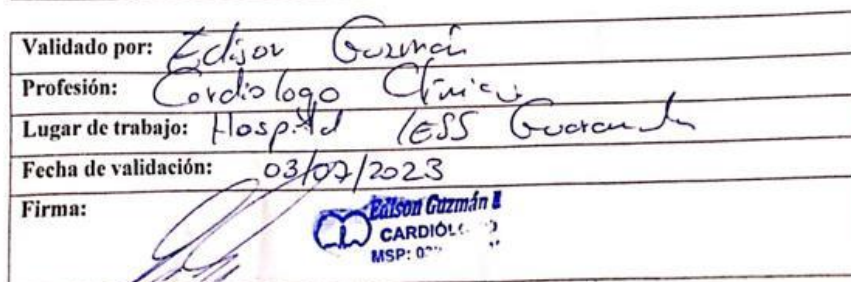 Validado por: Edison Guzmán
Profesión: Cardiologo Clínico
Lugar de trabajo: Hospital IESS Guaranda
Fecha de validación: 03/07/2023
Firma:
Edison Guzmán
CARDIÓLOGO
MSP: